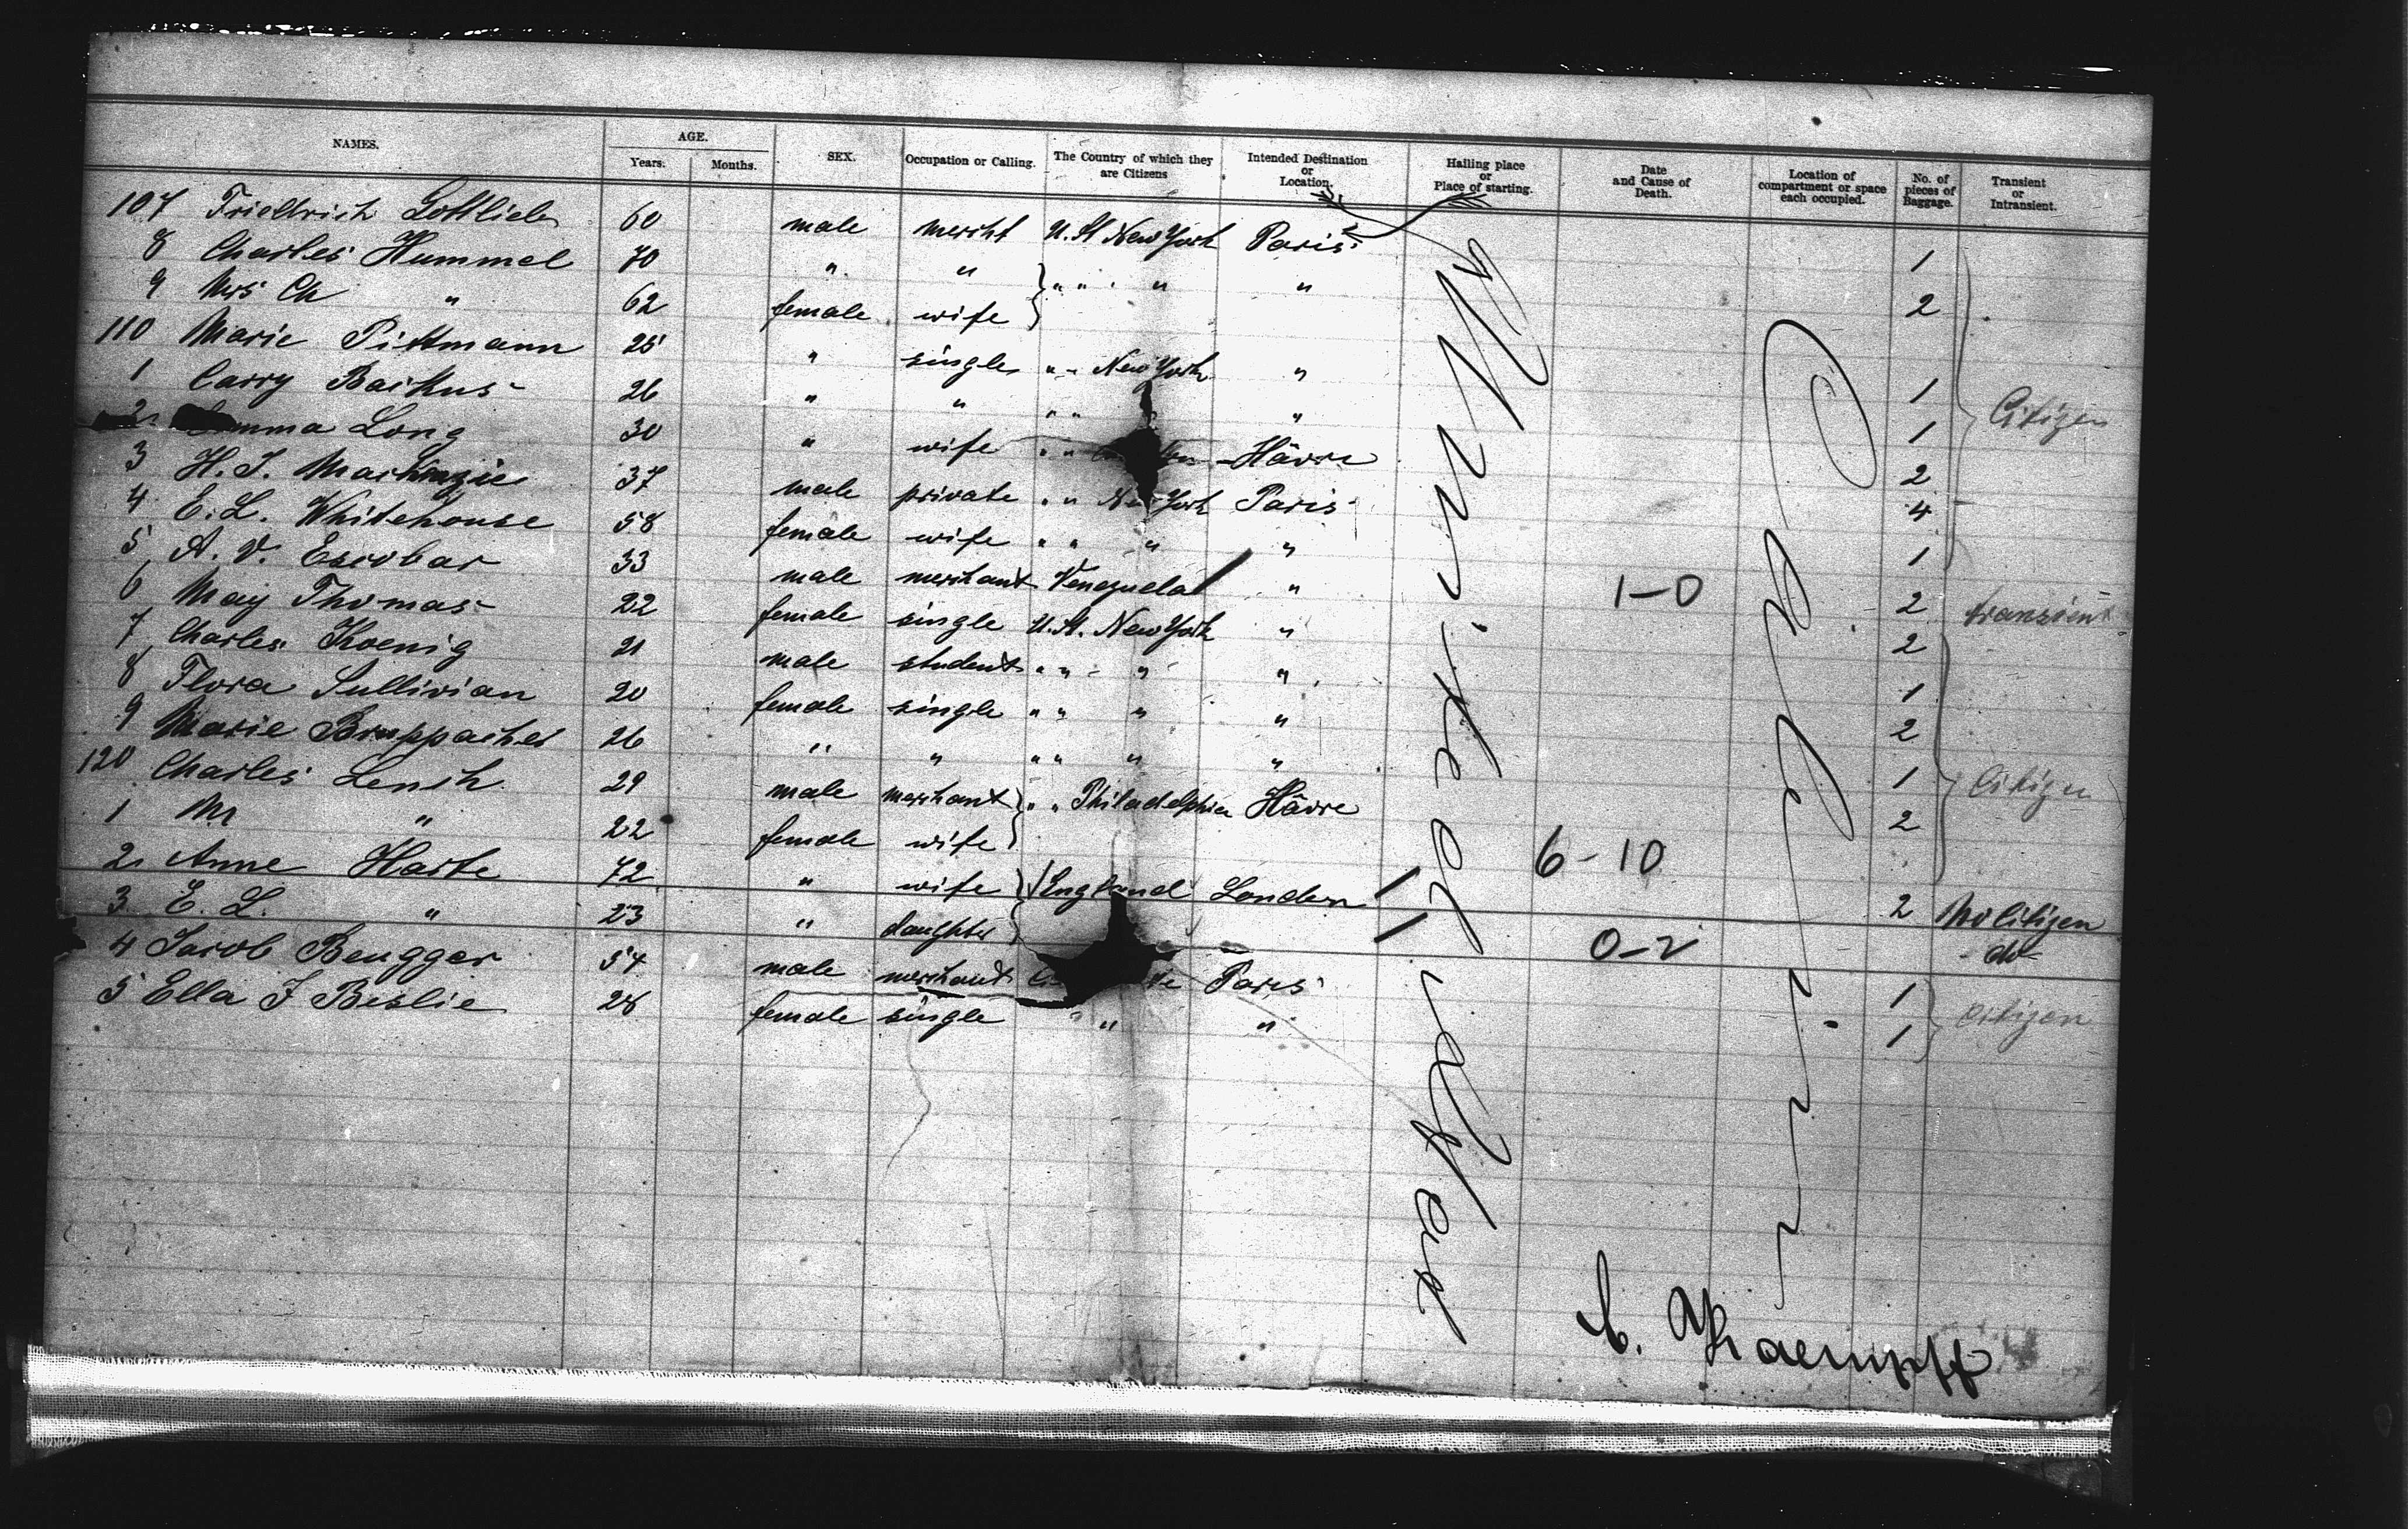 NAMES. AGE. Years. Months. SEX. Occupation or Calling. The Country of which they are Citizens Intended Destination or Location. Hailing place or Place of starting. Date and Cause of Death. Location of compartment or space each occupied. No. of pieces of Baggage. Transient or Intransient.
107 Friedrich Gottlieb 60 male mercht U.St New York Paris 1
8 Charles Hummel 70 " " " " " " 2
9 Mrs Ch " 62 female wife
110 Marie Pittmann 25 " single " " New York " 1
1 Carry Backus 26 " " " " " " 1 Citizen
2 Emma Long 30 " wife " " Hâvre 2
3 H. J. Mackenzie 37 male private " " New York Paris 4
4 E. L. Whitehouse 58 female wife " " " " 1
5 A. V. Escobar 33 male merchant Venezuela " 1-0 2 transient
6 May Thomas 22 female single U.St. New York " 2
7 Charles Koenig 21 male student " " " " 1
8 Flora Sullivian 20 female single " " " " 2
9 Marie Bruppacher 26 " " " " " " 1 Citizen
120 Charles 29 male merchant " " Philadelphia Hâvre 2
1 " 22 female wife 6-10
2 Anne Harte 72 " wife England London 2 No Citizen
3 E. L. " 23 " daughter 0-2 do
4 Jacob Bengger 54 male merchant Paris 1 citizen
5 Ella F Beslie 28 female single " " 1
C. Kaempff